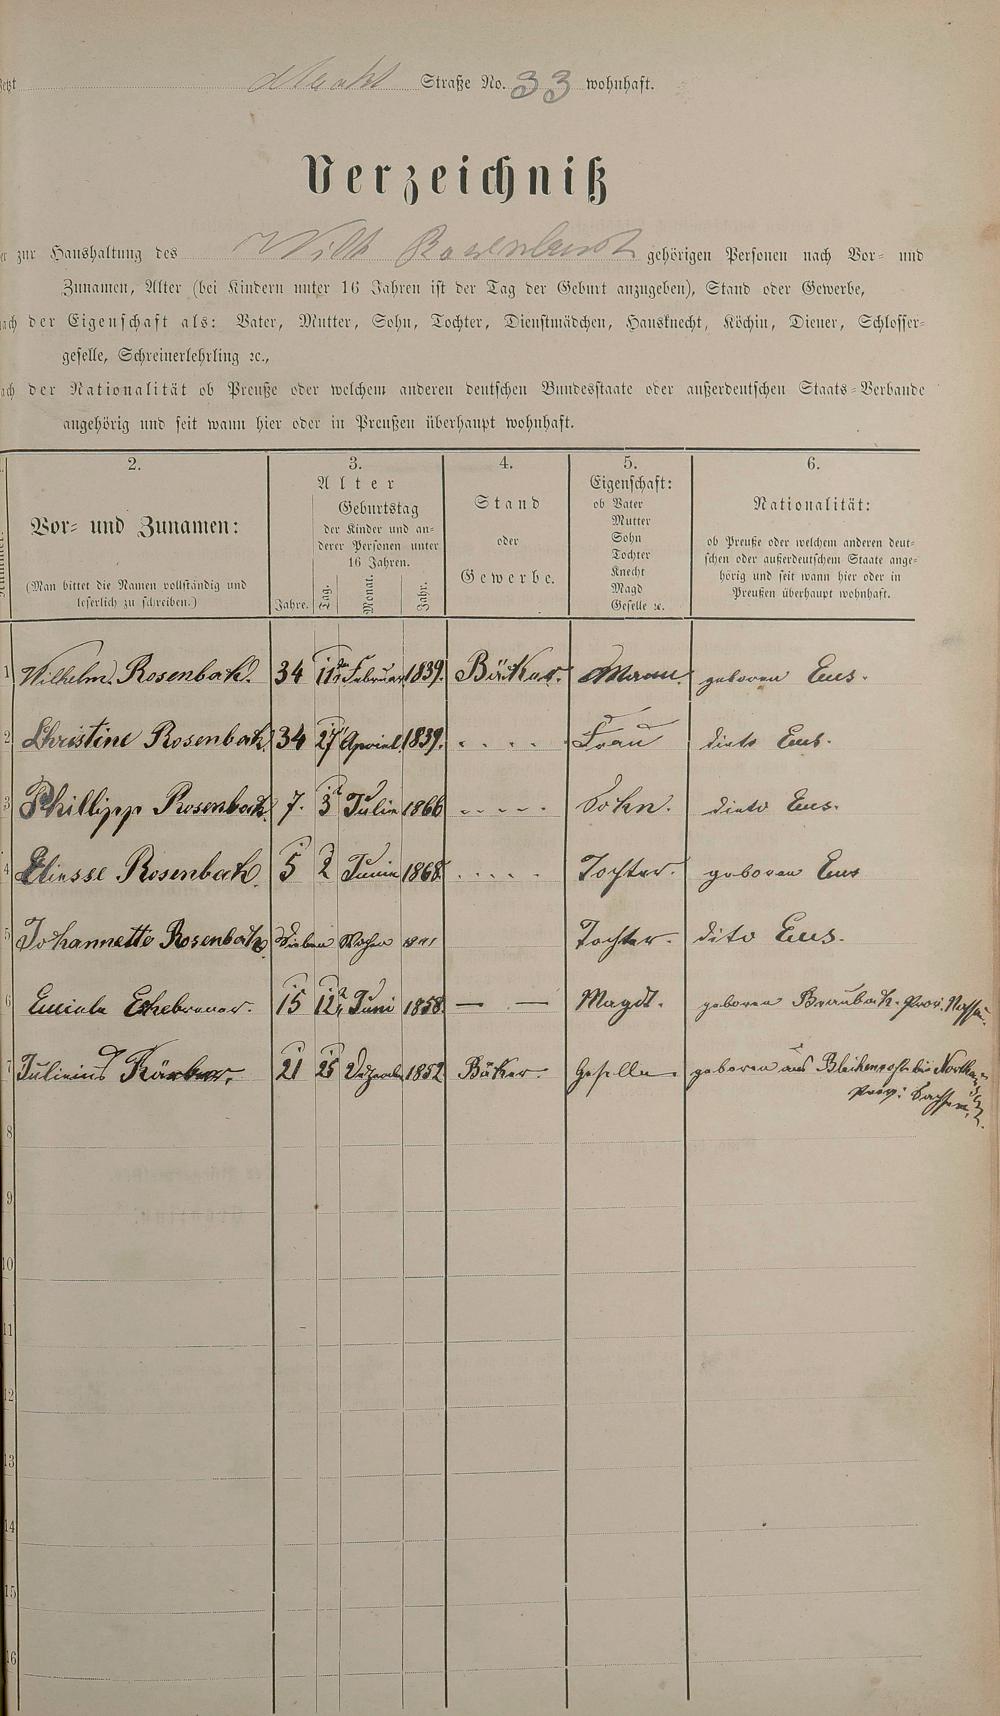 Markt Straße No. 33 wohnhaft.
Verzeichniß
zur Haushaltung des Wilh Rosenbach gehörigen Personen nach Vor- und
Zunamen, Alter (bei Kindern unter 16 Jahren ist der Tag der Geburt anzugeben), Stand oder Gewerbe,
der Eigenschaft als: Vater, Mutter, Sohn, Tochter, Dienstmädchen, Hausknecht, Köchin, Diener, Schlosser-
geselle, Schreinerlehrling ꝛc.,
der Nationalität ob Preuße oder welchem anderen deutschen Bundesstaate oder außerdeutschen Staats-Verbande
angehörig und seit wann hier oder in Preußen überhaupt wohnhaft.
2. 3. 4. 5. 6.
Vor- und Zunamen:
(Man bittet die Namen vollständig und
leserlich zu schreiben.)
Alter
Geburtstag
der Kinder und an-
derer Personen unter
16 Jahren.
Jahre. Tag. Monat. Jahr.
Stand
oder
Gewerbe.
Eigenschaft:
ob Vater
Mutter
Sohn
Tochter
Knecht
Magd
Geselle ꝛc.
Nationalität:
ob Preuße oder welchem anderen deut-
schen oder außerdeutschem Staate ange-
hörig und seit wann hier oder in
Preußen überhaupt wohnhaft.
1 Wilhelm Rosenbach. 34 11 Februar 1839. Bäcker. Mann. geboren Ems.
2 Christine Rosenbach 34 27 Apriel 1839. Frau dieto Ems.
3 Phillipp Rosenbach. 7. 3 Julie 1866 Sohn. dieto Ems.
4 Eliesse Rosenbach. 5 2 Junie 1868. Tochter. geboren Ems
5 Johannette Rosenbach Sieben Wochen Tochter. dito Ems.
6 15 12 Juni 1858. — — Magd. geboren Braubach. Prov. Nassau.
7 21 25 1852 Bäker Geselle. geboren aus bei
Prov: Sachsen.
8
9
10
11
12
13
14
15
16